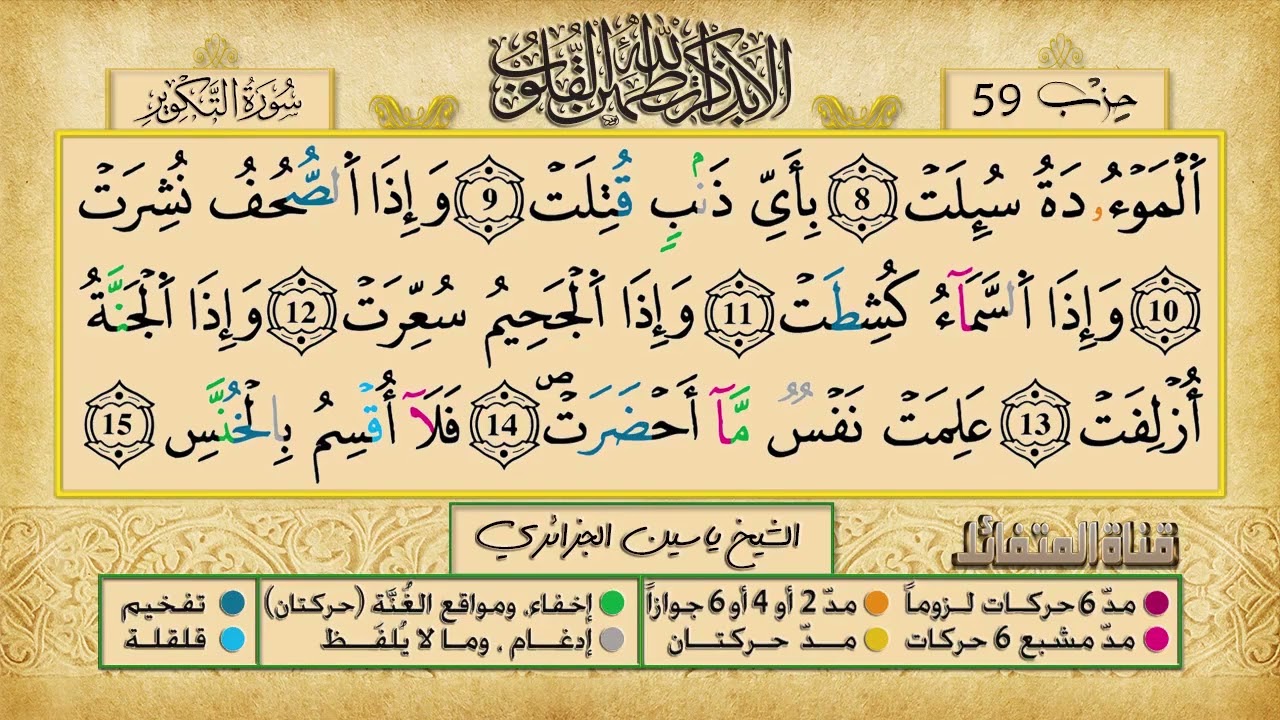 حِزْب 59
أَلَا بِذِكْرِ اللَّهِ تَطْمَئِنُّ الْقُلُوبُ
سُورَةُ التَّكْوِيرِ
اَ۬لْمَوْءُۥدَةُ سُئِلَتْ 8 بِأَيِّ ذَنۢبٖ قُتِلَتْ 9 وَإِذَا اَ۬لصُّحُفُ نُشِرَتْ
10 وَإِذَا اَ۬لسَّمَآءُ كُشِطَتْ 11 وَإِذَا اَ۬لْجَحِيمُ سُعِّرَتْ 12 وَإِذَا اَ۬لْجَنَّةُ
أُزْلِفَتْ 13 عَلِمَتْ نَفْسٞ مَّآ أَحْضَرَتْۖ 14 فَلَآ أُقْسِمُ بِالْخُنَّسِ 15
الشيخ ياسين الجزائري
قناة المتفائل
مدّ 6 حركات لـزوماً
مدّ 2 أو 4 أو 6 جوازاً
إخفاء، ومواقع الغُنَّة (حركتان)
تفخيم
مدّ مشبع 6 حركات
مـدّ حـركـتـان
إدغـام ، ومـا لا يُلفَـظ
قلقلة